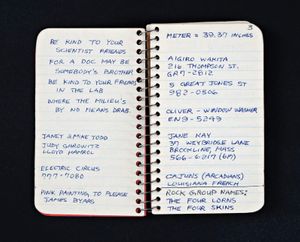 BE KIND TO YOUR
SCIENTIST FRIENDS
FOR A DOC MAY BE
SOMEBODY'S BROTHER
BE KIND TO YOUR FRIENDS
IN THE LAB
WHERE THE MILIEU'S
BY NO MEANS DRAB
JANET & MIKE TODD
JUDY GEROWITZ
LLOYD HAMROL
ELECTRIC CIRCUS
777-7080
PINK PAINTING TO PLEASE
JAMES BYARS
3
METER = 39.37 INCHES
AIGIRO WAKITA
216 THOMPSON ST.
GR7-2812
9 GREAT JONES ST
982-0506
OLIVER - WINDOW WASHER
EN9-5249
JANE KAY
39 WEYBRIDGE LANE
BROOKLINE, MASS
566-6217 (6PM)
CAJUNS (ARCADIANS)
LOUISIANA FRENCH
ROCK GROUP NAMES:
THE FOUR LORNS
THE FOUR SKINS